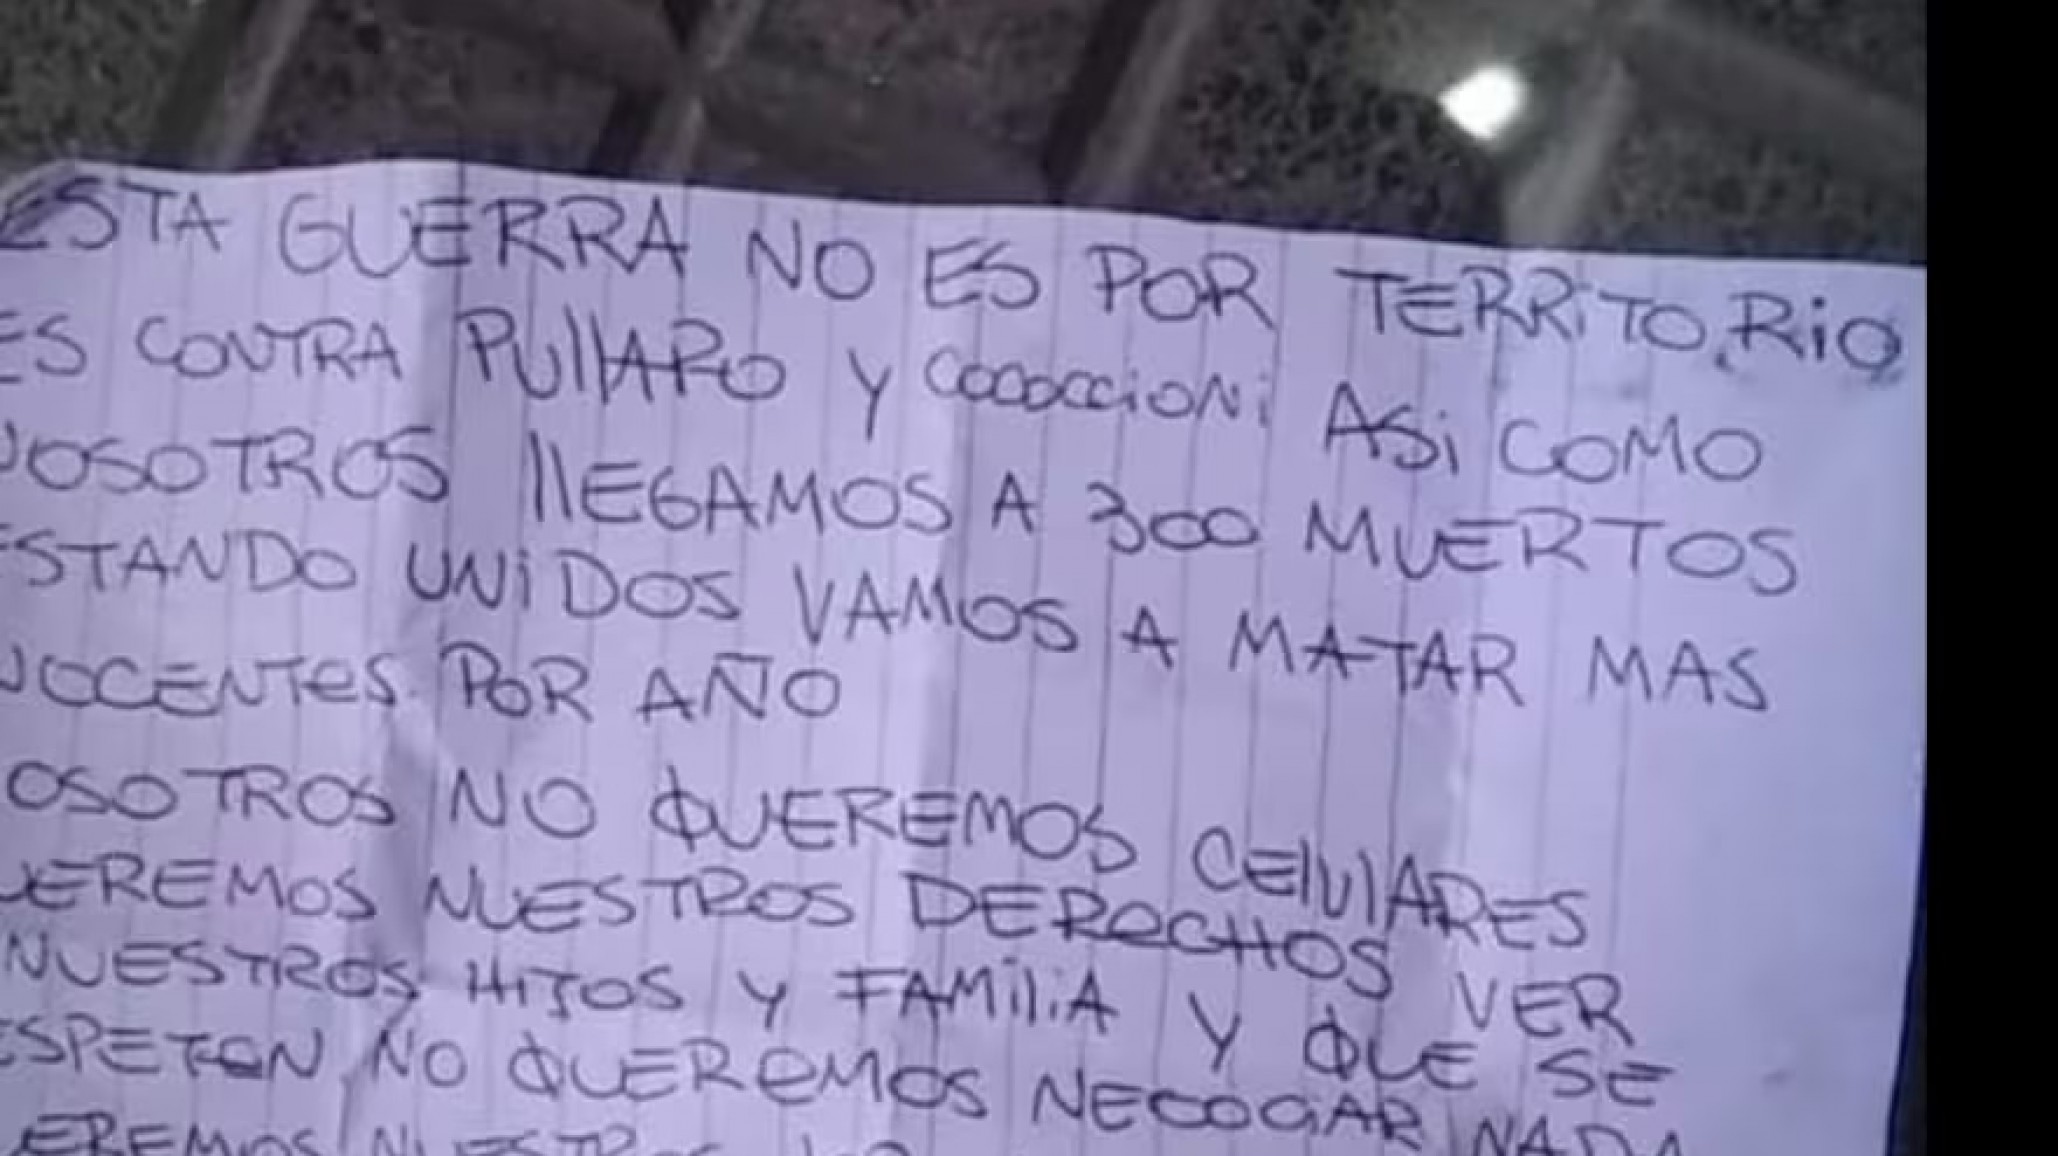 ESTA GUERRA NO ES POR TERRiTO,RiO
ES CONTRA PUllARO Y COCOCCiONi ASi COMO
NOSOTROS llEGAMOS A 300 MUERTOS
ESTANDO UNiDOS VAMOS A MATAR MAS
NOCENTeS POR AÑO
OSOTROS NO QUEREMOS CElulARES
UEREMOS NUESTROS DEReCHOS VER
NUESTROS HIJOS Y FAMiliA Y QUE SE
ESPETEN NO QUEReMOS NECOGIAR NADA
EREMOS NUESTRO